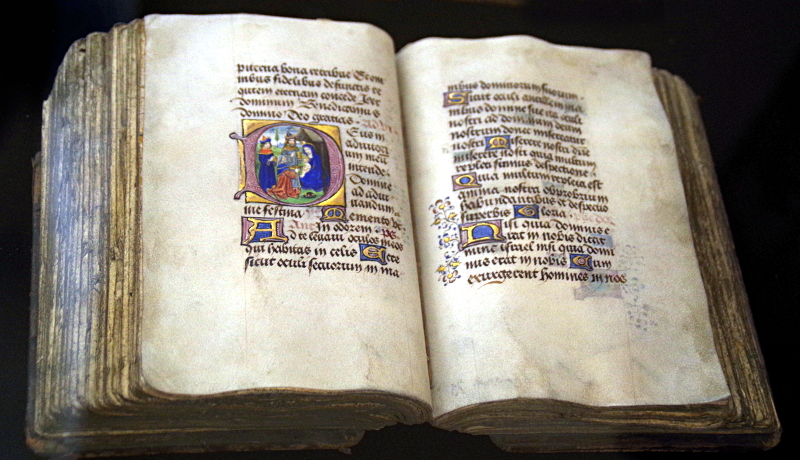 buena bona retribue Et om
nibus fidelibus defunctis re
quiem eternam concede Jere
dominum Benedicamus
domino Deo gracias
Deus in
adiutori
um meu
intende
Domine
ad adiu
uandum
me festina Memento
Ant In odorem ps
Ad te leuaui oculos meos
qui habitas in celis Ecce
sicut oculi seruorum in ma
nibus dominorum suorum
Sicut oculi ancille in ma
nibus domine sue ita oculi
nostri ad dominum deum
nostrum donec misereatur
nostri Miserere
nostri quia multum
repleti sumus despectione
Quia multum repleta est
anima nostra obprobrium
habundantibus et despectio
superbis Gloria
Nisi quia dominus e
rat in nobis dicat
nunc israel nisi quia domi
nus erat in nobis Cum
exurgerent homines in nos